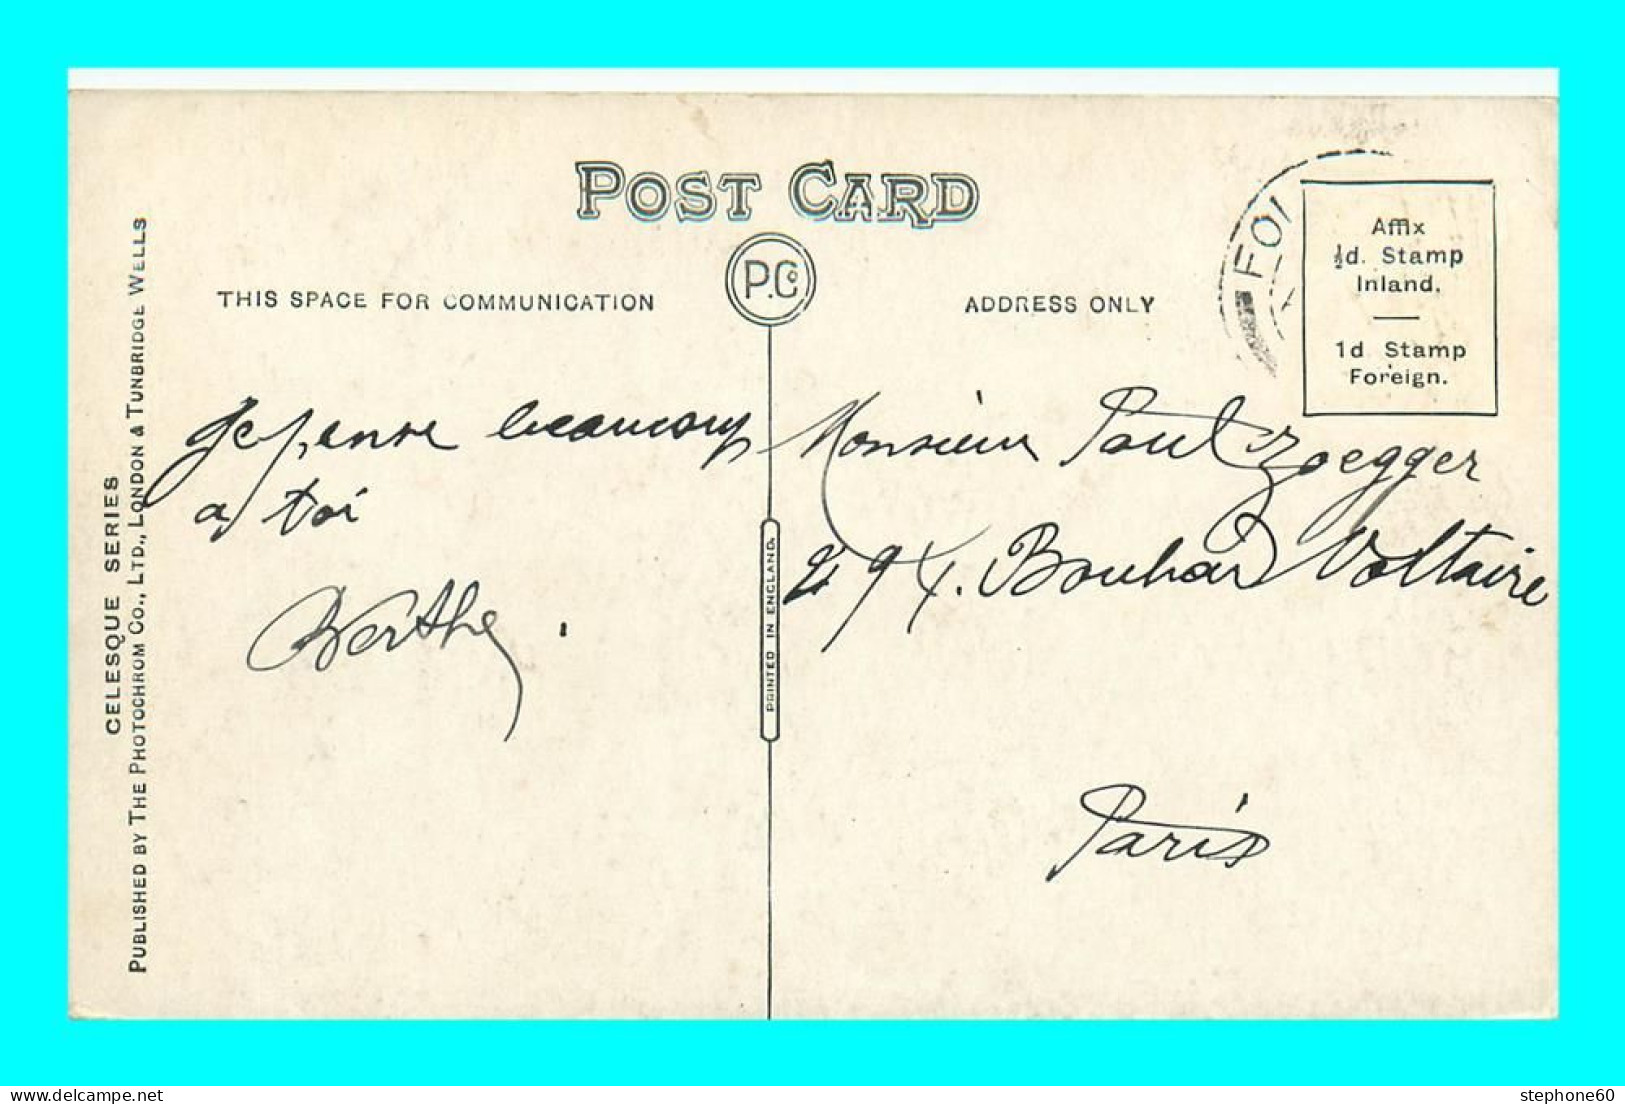 POST CARD
P.Co
THIS SPACE FOR COMMUNICATION
ADDRESS ONLY
FOI
Affix
½d. Stamp
Inland.
1d Stamp
Foreign.
Je pense beaucoup
a toi
Berthe.
Monsieur Paul Zoegger
Boulvar Voltaire
Paris
PRINTED IN ENGLAND.
CELESQUE SERIES
PUBLISHED BY THE PHOTOCHROM CO., LTD., LONDON & TUNBRIDGE WELLS
stephone60